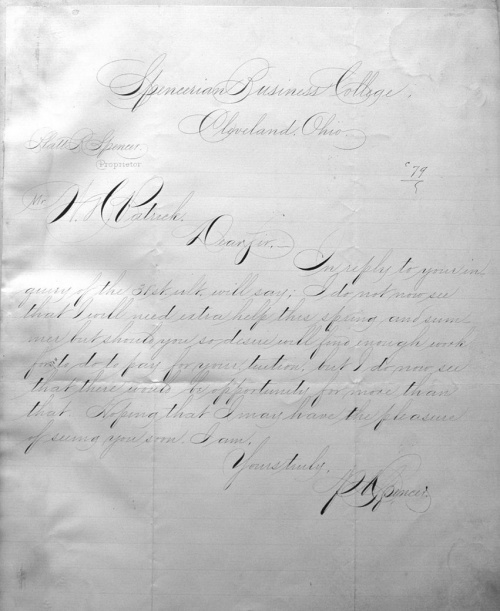 Spencerian Business College.
Cleveland, Ohio.
Platt R. Spencer,
Proprietor
79
5
Mr. H. C. Patrick,
Dear Sir.
In reply to your in
quiry of the 31st ult. will say; I do not now see
that I will need extra help this spring and sum
mer but should you so desire will find enough work
for to do to pay for your tuition. but I do now see
that there would be opportunity for more than
that. Hoping that I may have the pleasure
of seeing you soon. I am,
Yours truly,
P R Spencer